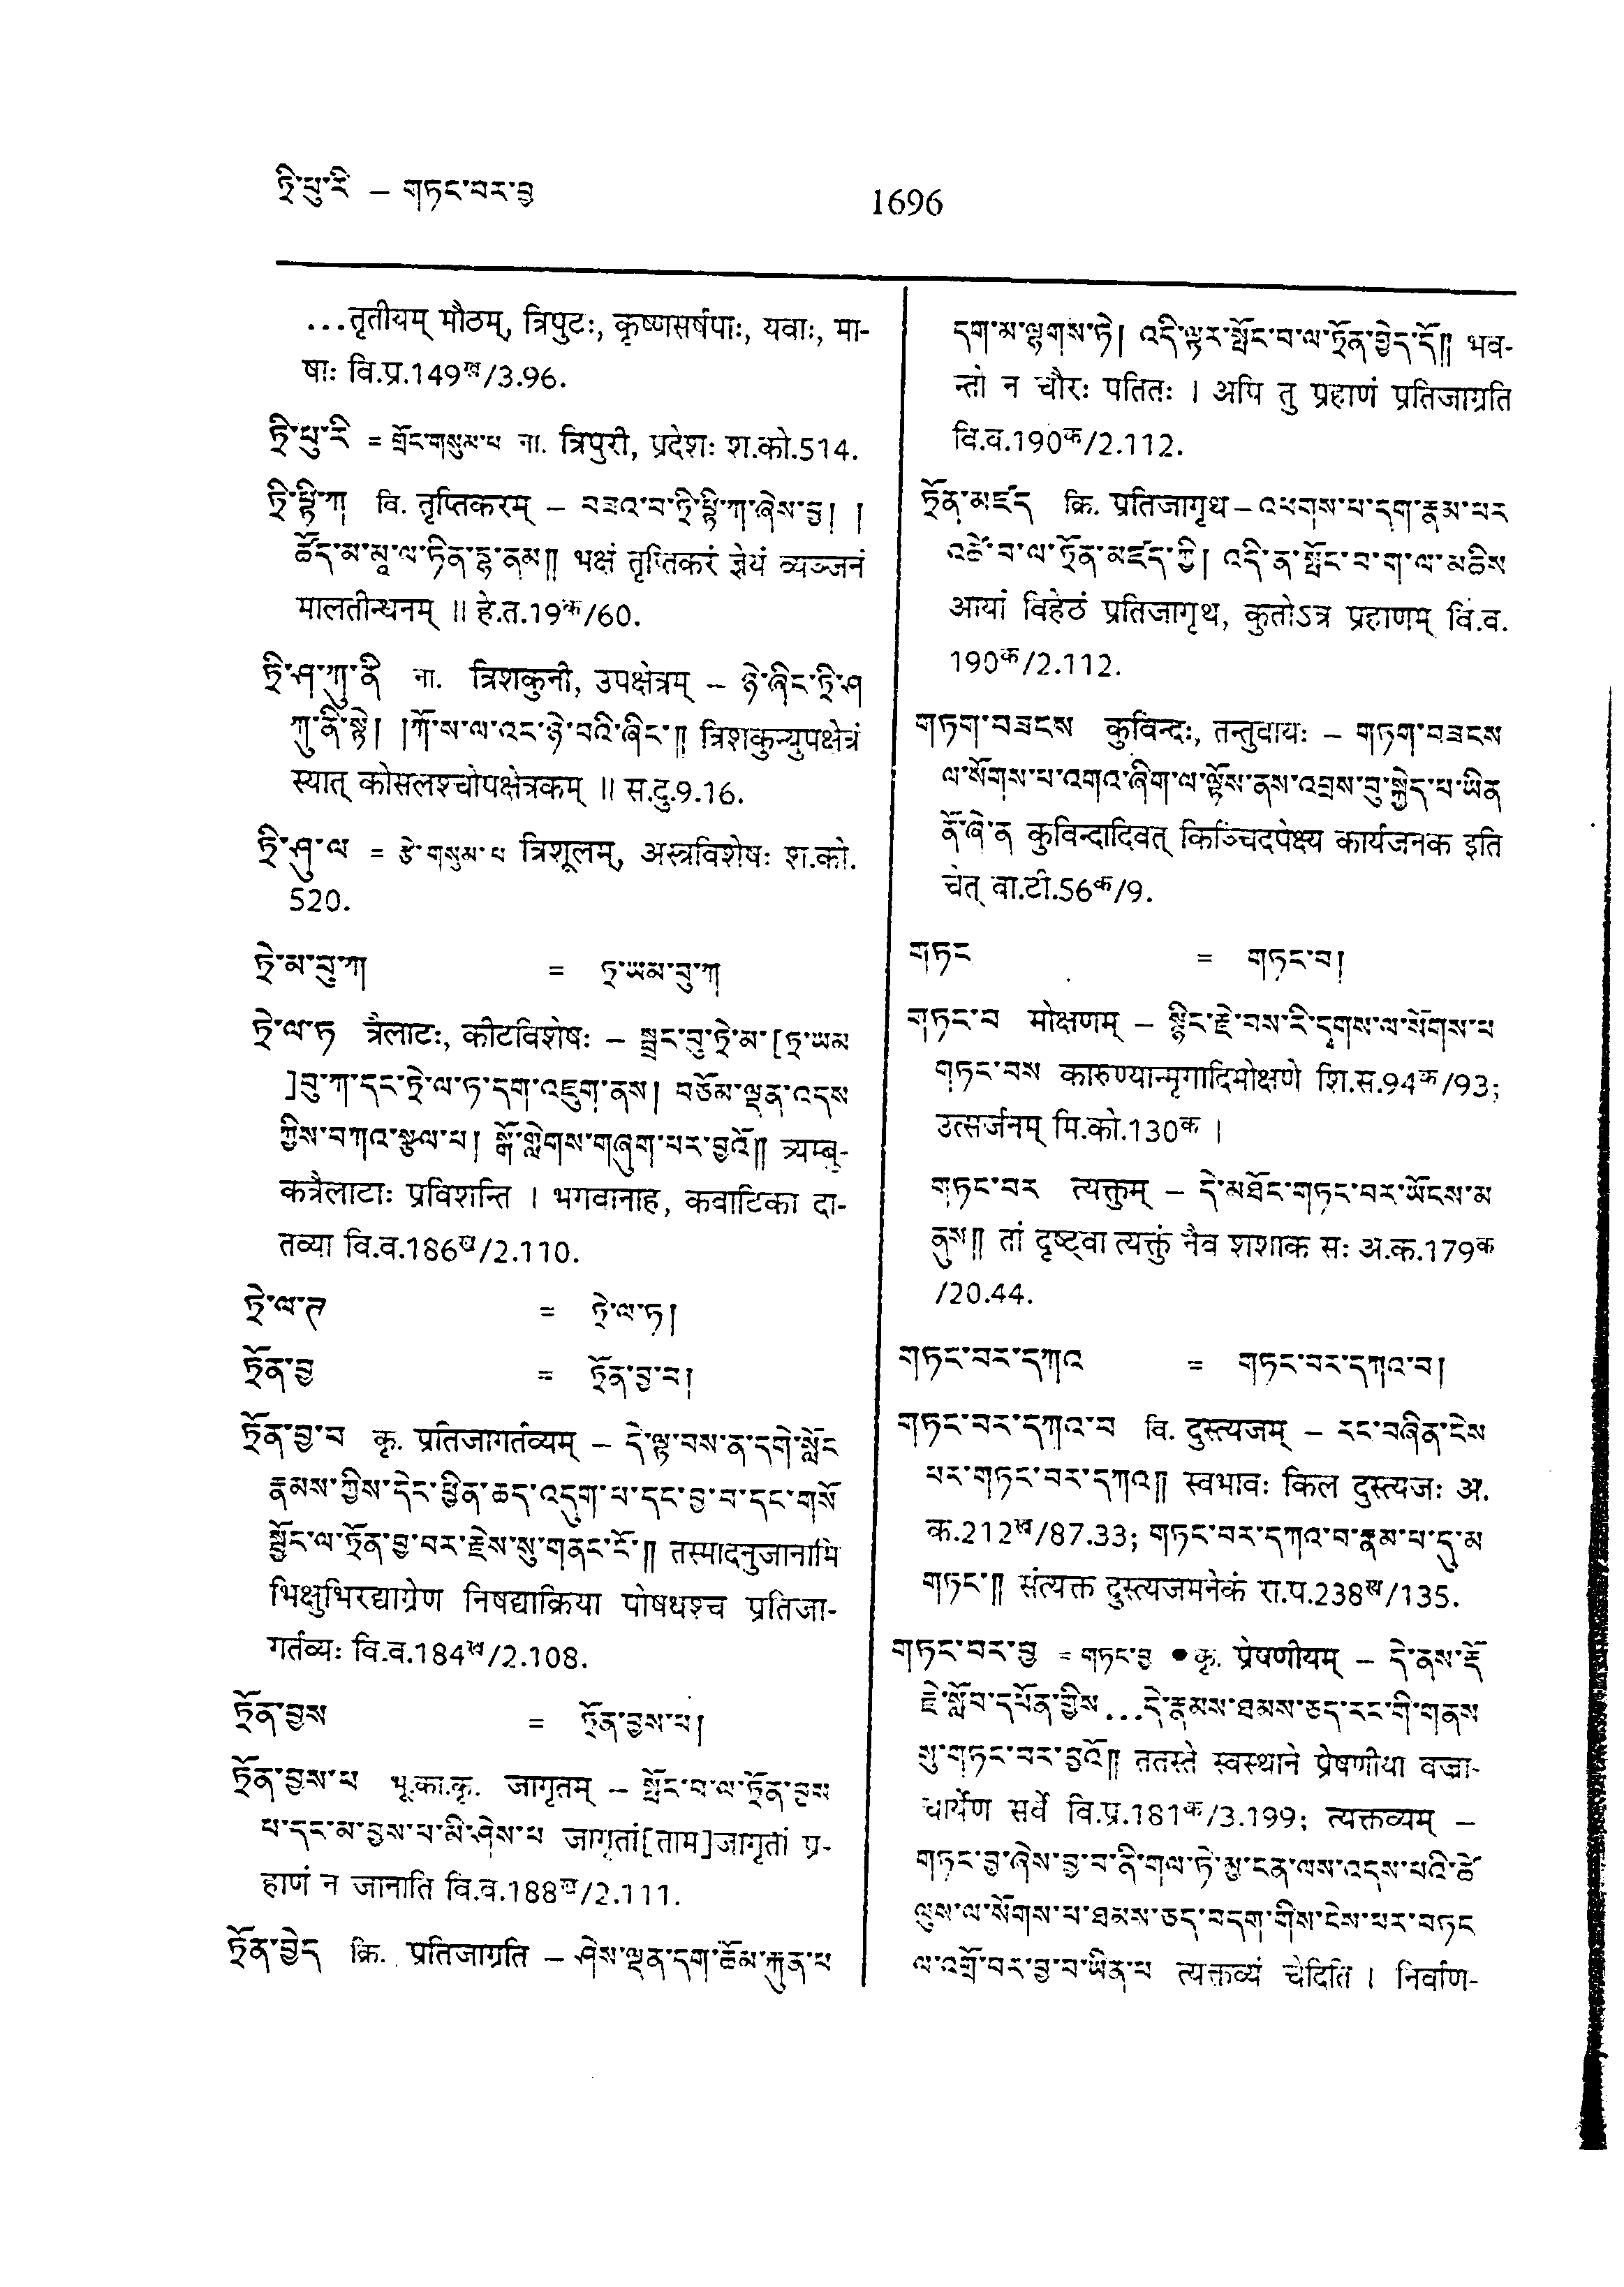 ཏྲི་པུ་རི – གཏང་བར་བྱ
1696
...तृतीयम् मौठम्, त्रिपुटः, कृष्णसर्षपाः, यवाः, मा-
षाः वि.प्र.149ख/3.96.
ཏྲི་པུ་རི = གྲོང་གསུམ་པ ना. त्रिपुरी, प्रदेशः श.को.514.
ཏྲི་པྟི་ཀ། वि. तृप्तिकरम् – བཟའ་བ་ཏྲི་པྟི་ཀ་ཞེས་བྱ། །
ཚོད་མ་མཱ་ལ་ཏིན་དྷ་ནམ།། भक्षं तृप्तिकरं ज्ञेयं व्यञ्जनं
मालतीन्धनम् ॥ हे.त.19क/60.
ཏྲི་ཤ་ཀུ་ནི ना. त्रिशकुनी, उपक्षेत्रम् – ཉེ་ཞིང་ཏྲི་ཤ
ཀུ་ནི་སྟེ། །ཀོ་ས་ལ་འང་ཉེ་བའི་ཞིང་།། त्रिशकुन्युपक्षेत्रं
स्यात् कोसलश्चोपक्षेत्रकम् ॥ स.दु.9.16.
ཏྲི་ཤུ་ལ = རྩེ་གསུམ་པ त्रिशूलम्, अस्त्रविशेषः श.को.
520.
ཏྲེ་མ་བུ་ཀ། = ཏྲ་ཡམ་བུ་ཀ།
ཏྲེ་ལ་ཏ त्रैलाटः, कीटविशेषः – སྦྲང་བུ་ཏྲེ་མ་[ཏྲ་ཡམ
]བུ་ཀ་དང་ཏྲེ་ལ་ཏ་དག་འཇུག་ནས། བཅོམ་ལྡན་འདས
ཀྱིས་བཀའ་སྩལ་པ། སྒོ་གླེགས་གཞུག་པར་བྱའོ།། त्र्यम्बु-
कत्रैलाटाः प्रविशन्ति । भगवानाह, कवाटिका दा-
तव्या वि.व.186ख/2.110.
ཏྲེ་ལ་ཊ = ཏྲེ་ལ་ཏ།
ཏྲོན་བྱ = ཏྲོན་བྱ་བ།
ཏྲོན་བྱ་བ कृ. प्रतिजागर्तव्यम् – དེ་ལྟ་བས་ན་དགེ་སློང
རྣམས་ཀྱིས་དེང་ཕྱིན་ཆད་འདུག་པ་དང་བྱ་བ་དང་གསོ
སྦྱོང་ལ་ཏྲོན་བྱ་བར་རྗེས་སུ་གནང་ངོ་།། तस्मादनुजानामि
भिक्षुभिरद्याग्रेण निषद्याक्रिया पोषधश्च प्रतिजा-
गर्तव्यः वि.व.184ख/2.108.
ཏྲོན་བྱས = ཏྲོན་བྱས་པ།
ཏྲོན་བྱས་པ भू.का.कृ. जागृतम् – སྤོང་བ་ལ་ཏྲོན་བྱས
པ་དང་མ་བྱས་པ་མི་ཤེས་པ जागृतां[ताम]जागृतां प्र-
हाणं न जानाति वि.व.188ख/2.111.
ཏྲོན་བྱེད क्रि. प्रतिजाग्रति – ཤེས་ལྡན་དག་ཆོམ་རྐུན་པ
དག་མ་ལྷགས་ཏེ། འདི་ལྟར་སྤོང་བ་ལ་ཏྲོན་བྱེད་དོ།། भव-
न्तो न चौरः पतितः । अपि तु प्रहाणं प्रतिजाग्रति
वि.व.190क/2.112.
ཏྲོན་མཛད क्रि. प्रतिजागृथ – འཕགས་པ་དག་རྣམ་པར
འཚེ་བ་ལ་ཏྲོན་མཛད་ཀྱི། འདི་ན་སྤོང་བ་ག་ལ་མཆིས
आर्या विहेठं प्रतिजागृथ, कुतोऽत्र प्रहाणम् वि.व.
190क/2.112.
གཏག་བཟངས कुविन्दः, तन्तुवायः – གཏག་བཟངས
ལ་སོགས་པ་འགའ་ཞིག་ལ་ལྟོས་ནས་འབྲས་བུ་སྐྱེད་པ་ཡིན
ནོ་ཞེ་ན कुविन्दादिवत् किञ्चिदपेक्ष्य कार्यजनक इति
चेत् वा.टी.56क/9.
གཏང = གཏང་བ།
གཏང་བ मोक्षणम् – སྙིང་རྗེ་བས་རི་དྭགས་ལ་སོགས་པ
གཏང་བས कारुण्यान्मृगादिमोक्षणे शि.स.94क/93;
उत्सर्जनम् मि.को.130क ।
གཏང་བར त्यक्तुम् – དེ་མཐོང་གཏང་བར་ཡོངས་མ
ནུས།། तां दृष्ट्वा त्यक्तुं नैव शशाक सः अ.क.179क
/20.44.
གཏང་བར་དཀའ = གཏང་བར་དཀའ་བ།
གཏང་བར་དཀའ་བ वि. दुस्त्यजम् – རང་བཞིན་ངེས
པར་གཏང་བར་དཀའ།། स्वभावः किल दुस्त्यजः अ.
क.212ख/87.33; གཏང་བར་དཀའ་བ་རྣམ་པ་དུ་མ
གཏང་།། संत्यक्त दुस्त्यजमनेकं रा.प.238ख/135.
གཏང་བར་བྱ = གཏང་བྱ ● कृ. प्रेषणीयम् – དེ་ནས་རྡོ
རྗེ་སློབ་དཔོན་གྱིས...དེ་རྣམས་ཐམས་ཅད་རང་གི་གནས
སུ་གཏང་བར་བྱའོ།། ततस्ते स्वस्थाने प्रेषणीया वज्रा-
चार्येण सर्वे वि.प्र.181क/3.199; त्यक्तव्यम् –
གཏང་བྱ་ཞེས་བྱ་བ་ནི་གལ་ཏེ་མྱ་ངན་ལས་འདས་པའི་ཚེ
ལུས་ལ་སོགས་པ་ཐམས་ཅད་བདག་གིས་ངེས་པར་བཏང
ལ་འགྲོ་བར་བྱ་བ་ཡིན་པ त्यक्तव्यं चेदिति । निर्वाण-